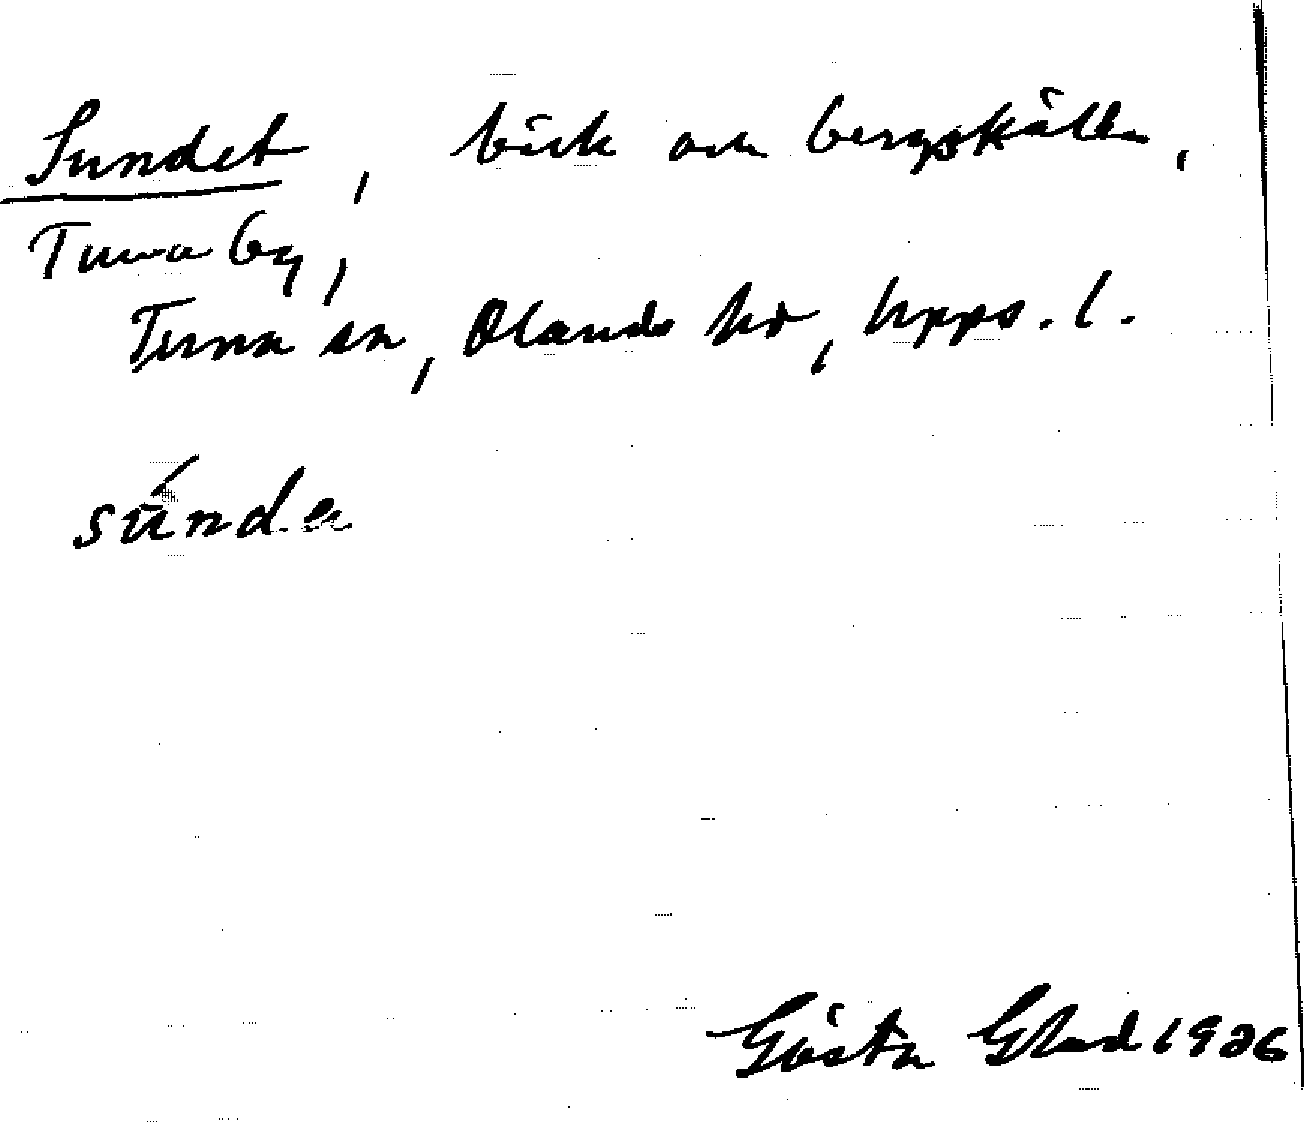 Sundet, bäck och bergskälla,
Tuna by,
Tuna sn, Olands hd, Upps. l.
súnde
Gösta Glad 1926